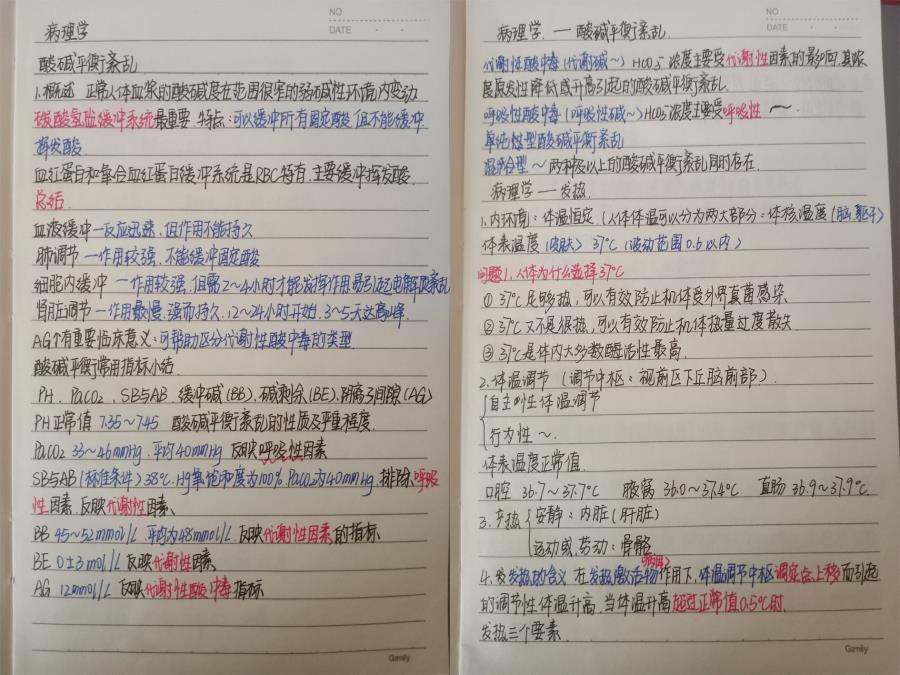 NO
DATE
病理学
酸碱平衡紊乱
1.概述 正常人体血浆的酸碱度在范围很窄的弱碱性环境内变动
碳酸氢盐缓冲系统最重要. 特点:可以缓冲所有固定酸 但不能缓冲
挥发酸
血红蛋白和氧合血红蛋白缓冲系统是RBC特有.主要缓冲挥发酸
总结
血液缓冲一反应迅速.但作用不能持久
肺调节 一作用较强.不能缓冲固定酸
细胞内缓冲 一作用较强.但需2~4小时才能发挥作用易引起电解质紊乱
肾脏调节 一作用最慢.强而持久.12~24小时开始.3~5天达高峰.
AG个有重要临床意义:可帮助区分代谢性酸中毒的类型
酸碱平衡常用指标小结.
PH、PaCO2、SB与AB、缓冲碱(BB)、碱剩余(BE)、阴离子间隙(AG)
PH正常值 7.35~7.45 酸碱平衡紊乱的性质及严重程度.
PaCO2 33~46mmHg.平均40mmHg 反映呼吸性因素
SB与AB(标准条件)38℃.Hg氧饱和度为100% PaCO2为40mmHg.排除呼吸
性因素.反映代谢性因素
BB 45~52mmol/L 平均为48mmol/L反映代谢性因素的指标
BE 0±3mol/L 反映代谢性因素
AG 12mmol/L 反映代谢性酸中毒指标
Gamily
NO
DATE
病理学.一酸碱平衡紊乱
代谢性酸中毒(代谢碱~) HCO3-浓度主要受代谢性因素的影响.其浓
度原发性降低或升高引起的酸碱平衡紊乱.
呼吸性酸中毒(呼吸性碱~)HCO3-浓度主要受呼吸性 ~
单纯性型酸碱平衡紊乱
混合型~ 两种及以上的酸碱平衡紊乱同时存在.
病理学一发热.
1.内环境:体温恒定.(人体体温可以分为两大部分:体核温度(脑.躯干)
体表温度(皮肤) 37℃(波动范围0.6以内)
问题1.人体为什么选择37℃
①37℃足够热,可以有效防止机体食外界真菌感染
②37℃又不是很热,可以有效防止机体热量过度散失
③37℃是体内大多数酶活性最高.
2.体温调节(调节中枢:视前区下丘脑前部).
自主性体温调节
行为性~.
体表温度正常值
口腔 36.7~37.7℃ 腋窝 36.0~37.4℃ 直肠 36.9~37.9℃
3.产热 安静:内脏(肝脏)
运动或.劳动:骨骼
4.发发热的含义 在发热激活物作用下,体温调节中枢调定点上移而引起
的调节性体温升高.当体温升高超过正常值0.5℃时.
发热三个要素.
Gamily